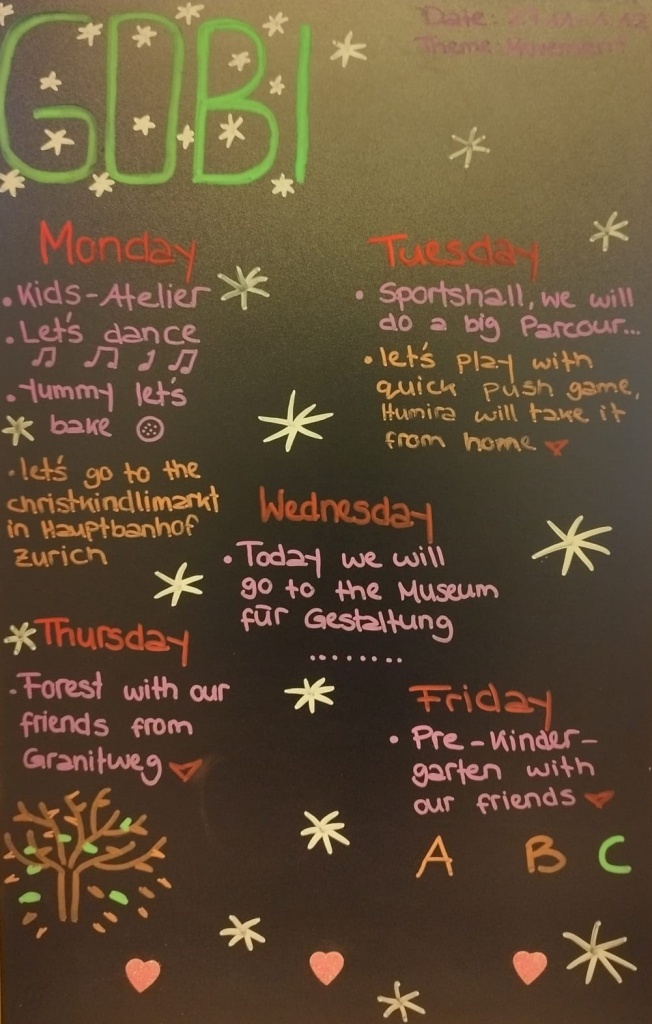 GOBI
Date:
Theme: Movement
Monday
• Kids-Atelier
• Let's dance
• Yummy let's
bake
• let's go to the
christkindlimarkt
in Hauptbanhof
zurich
Tuesday
• Sportshall, we will
do a big Parcour...
• let's play with
quick push game,
Humira will take it
from home
Wednesday
• Today we will
go to the Museum
für Gestaltung
........
Thursday
• Forest with our
friends from
Granitweg
Friday
• Pre-Kinder-
garten with
our friends
A B C